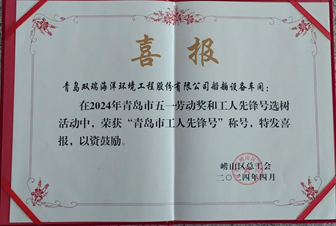 喜报
青岛双瑞海洋环境工程股份有限公司船舶设备车间：
在2024年青岛市五一劳动奖和工人先锋号选树
活动中，荣获“青岛市工人先锋号”称号，特发喜
报，以资鼓励。
崂山区总工会
二〇二四年四月